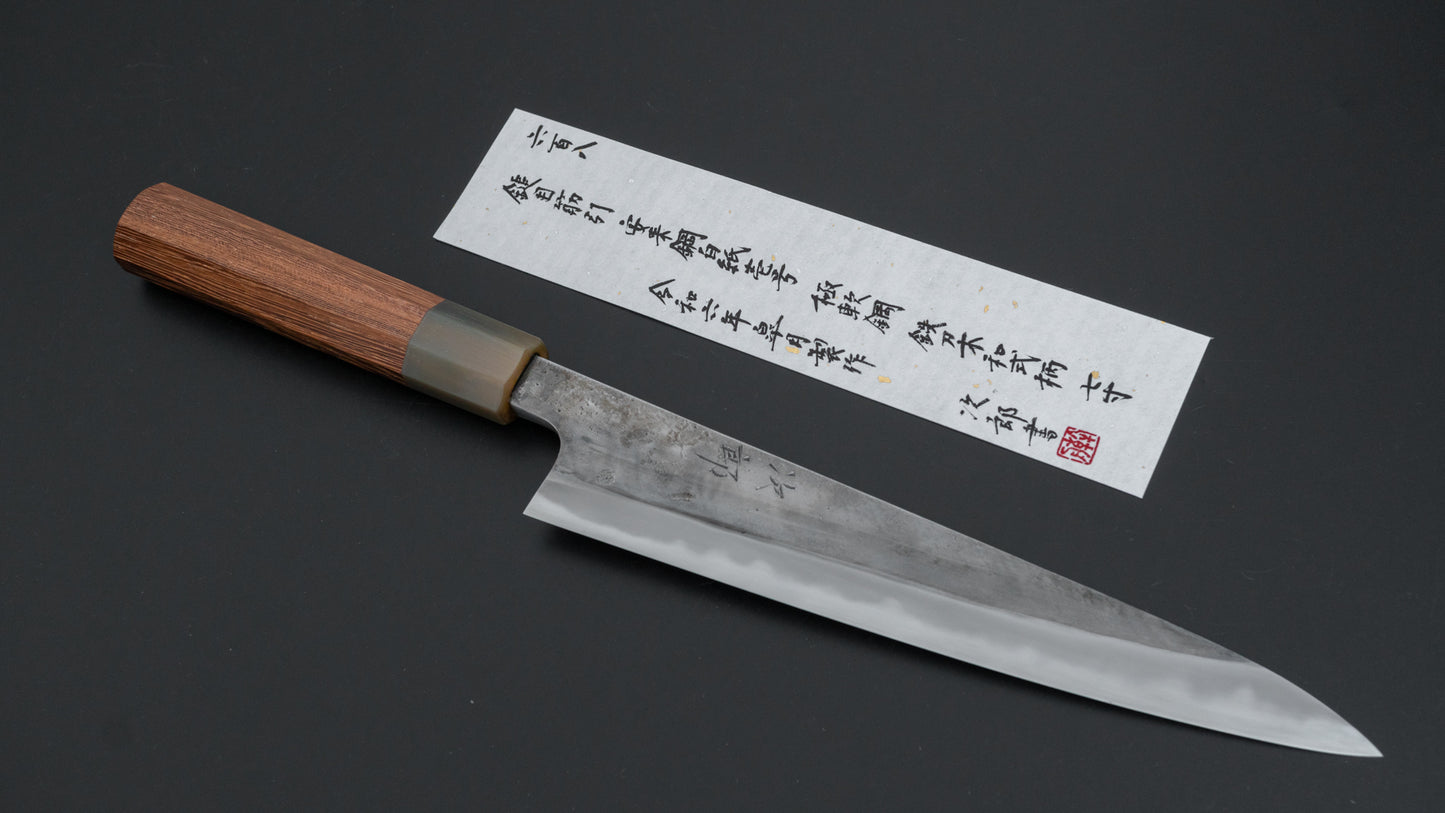 六百八
鎚目筋引 安来鋼白紙壱号 極軟鋼 鉄刀木和式柄 七寸
令和六年皐月製作
次郎書